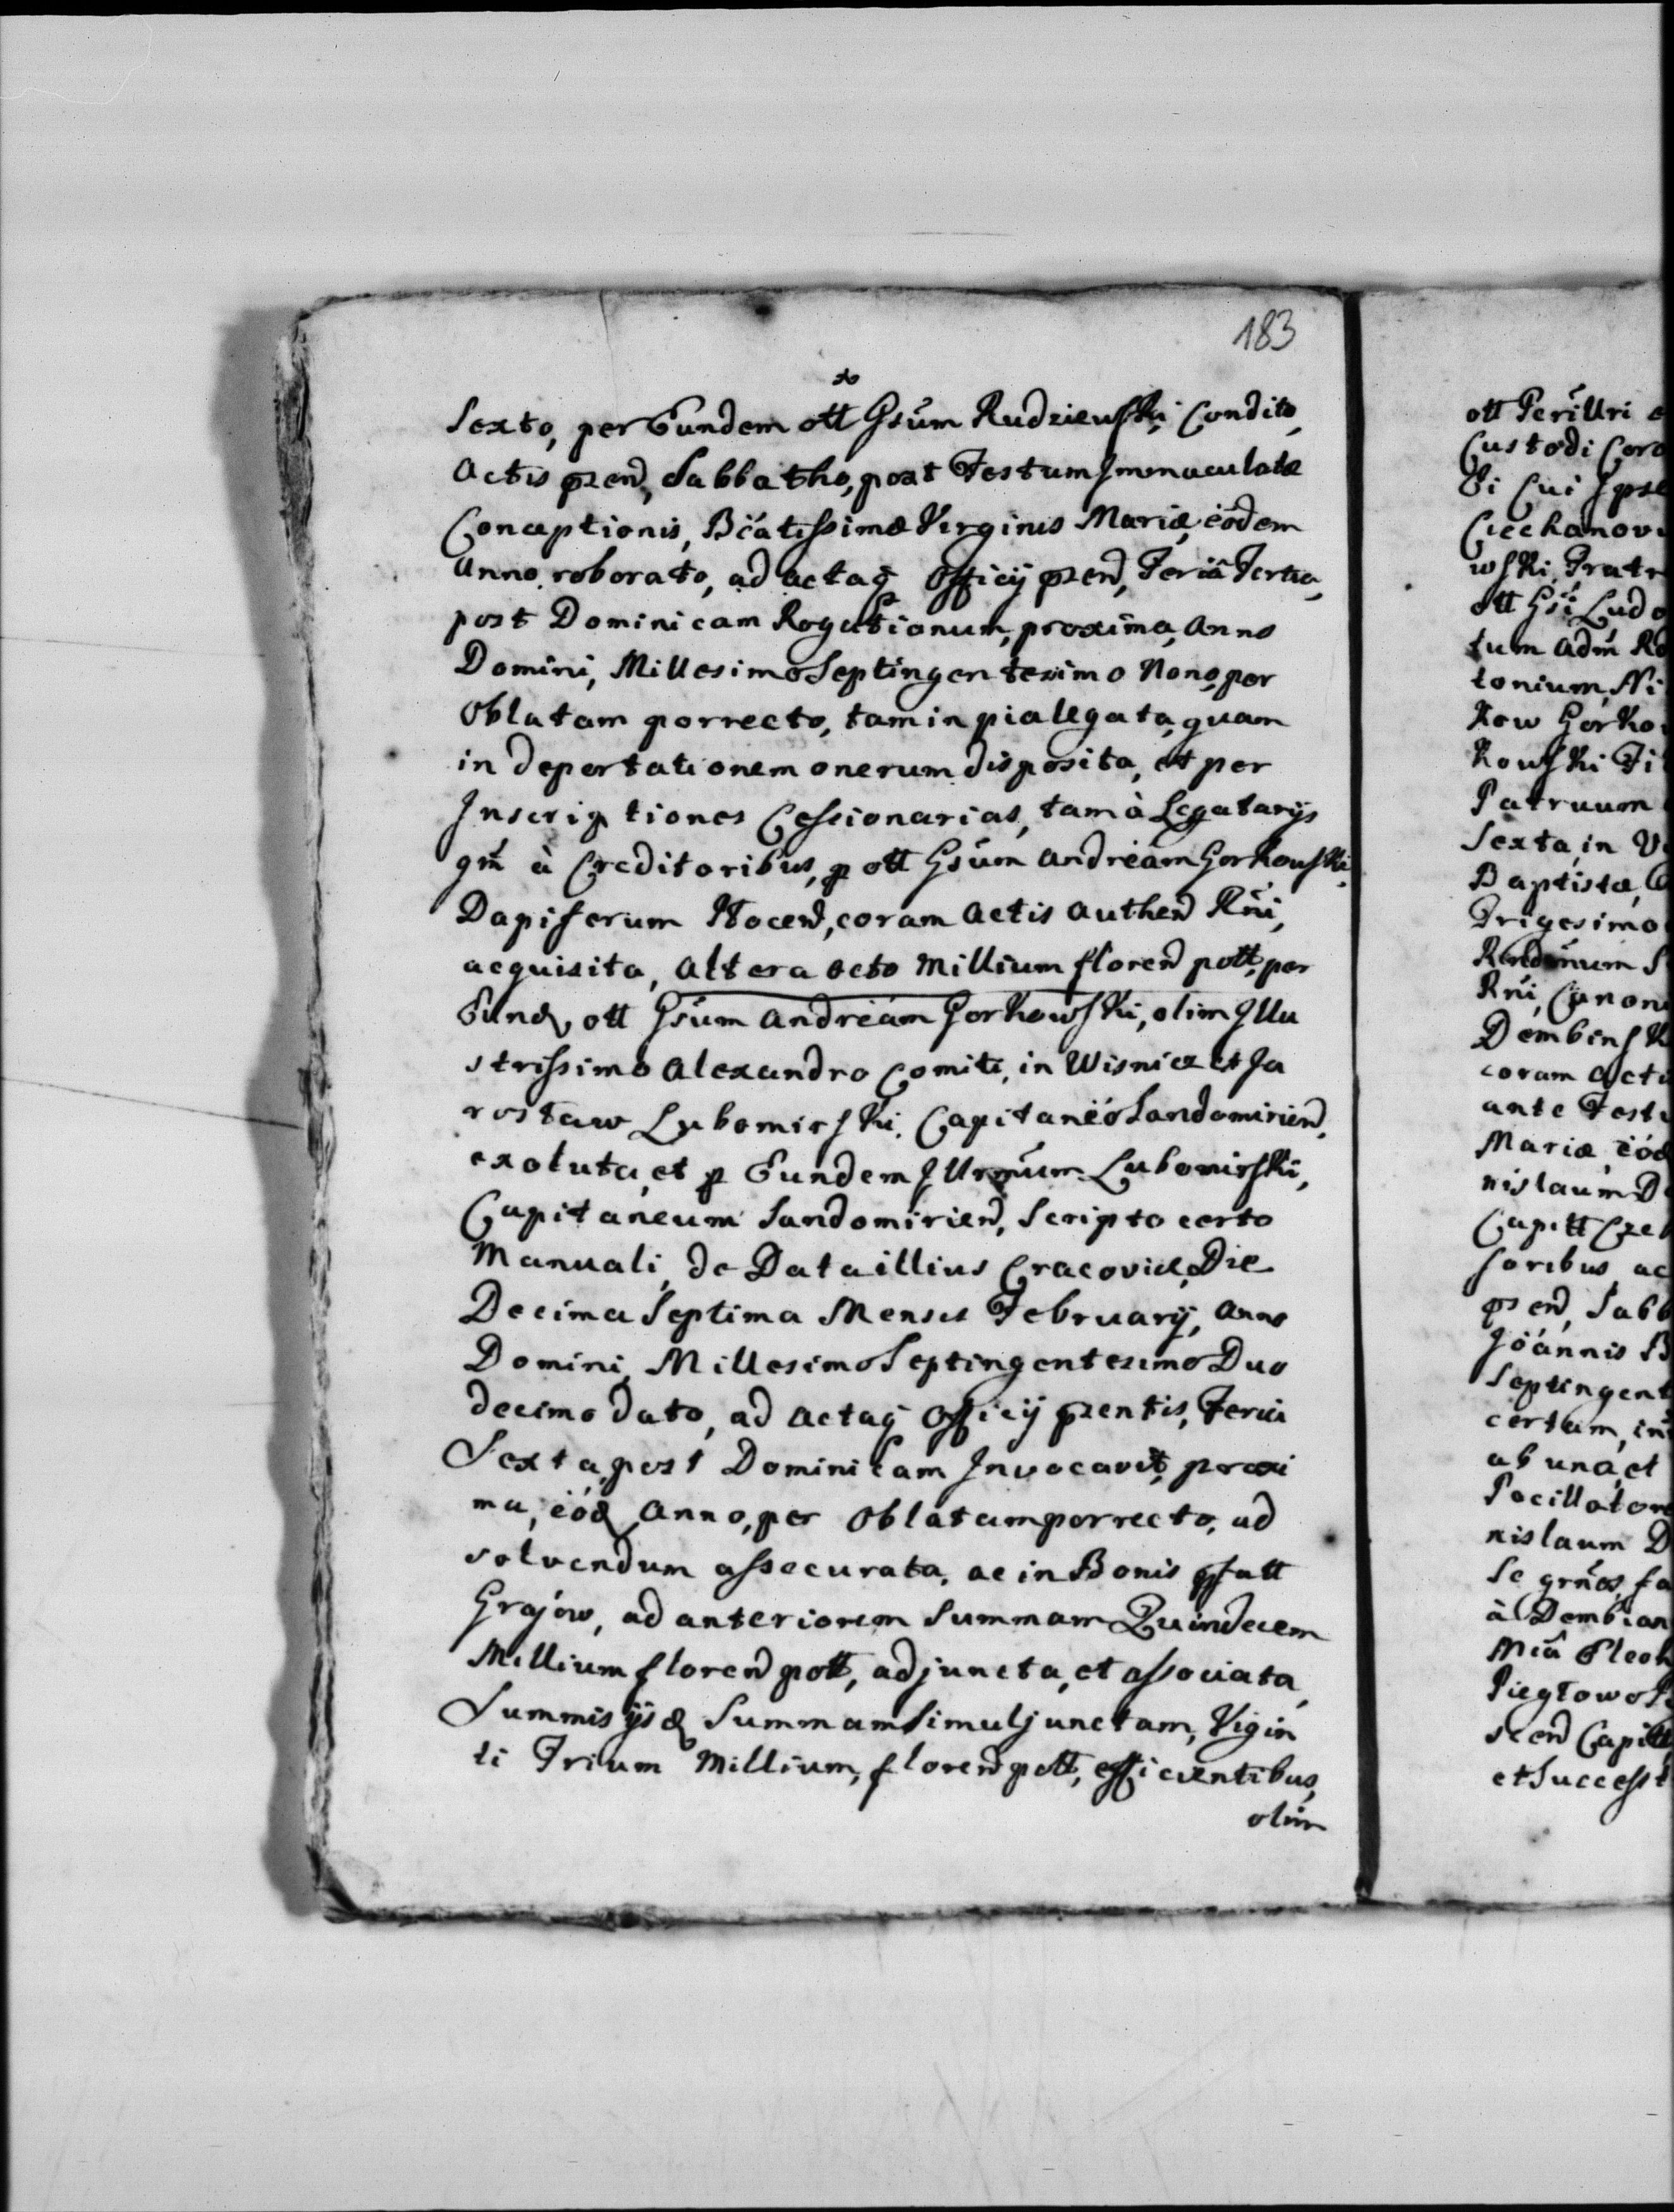 183
Sexto, per Eundem ott Gsum Rudzienski Condito,
Actis przen, Sabbatho, post Festum Immaculatæ
Conceptionis, Bėatissimæ Virginis Mariæ, eodem
Anno roborato, ad actaq Officij przen, Feriâ Tertia,
post Dominicam Rogationum, proxima, Anno
Domini, Millesimo Septingentesimo Nono, per
Oblatam porrecto, tam in pia legata, quam
in deportationem onerum disposita, et per
Inscriptiones Cessionarias, tam à Legatarijs
qm à Creditoribus, p ott Gsum Andreám Gorkowski,
Dapiferum coram Actis Authen Rni,
acquisita, altera octo Millium floren poll, per
Eund, ott Gsum Andreám Gorkowski, olim Illu
strissimo Alexandro Comiti, in Wisnicz et Ja
rosław Lubomirski, Capitaneo Sandomirien,
exoluta, et p Eundem Illrmum Lubomirski,
Capitaneum Sandomirien, Scripto certo
Manuali, de Data illius Cracoviæ, Die
Decima Septima Mensis Februarij, Anno
Domini, Millesimo Septingentesimo Duo
decimo dato, ad Actaq Officij przentis, Feria
Sexta, post Dominicam Invocavit, proxi
ma, eod, Anno, per Oblatam porrecto, ad
solvendum assecurata, ac in Bonis pfatt
Grajow, ad anteriorem Summam Quindecem
Millium floren poll, adjuncta, et associata,
Summis ijsd Summam simul junctam, Vigin
ti Trium Millium, floren poll, efficientibus,
olim
ott Perillri
Custodi
Cui
wski, Fratr
ott Gsi Ludo
tum adm
tonium
kow Gorko
kowski
Patruum
Sexta, in
Baptistæ,
Trigesimo
Rndmum
Rni, Canon
Dembinsk
coram Acti
ante Fest
Mariæ, eod
nislaum D
Capitt
soribus ac
przen, Sabb
Joannis B
Septingent
certum, in
ab una, et
Pocillator
nislaum D
Se
à Dembian
scen Capitt
et Success